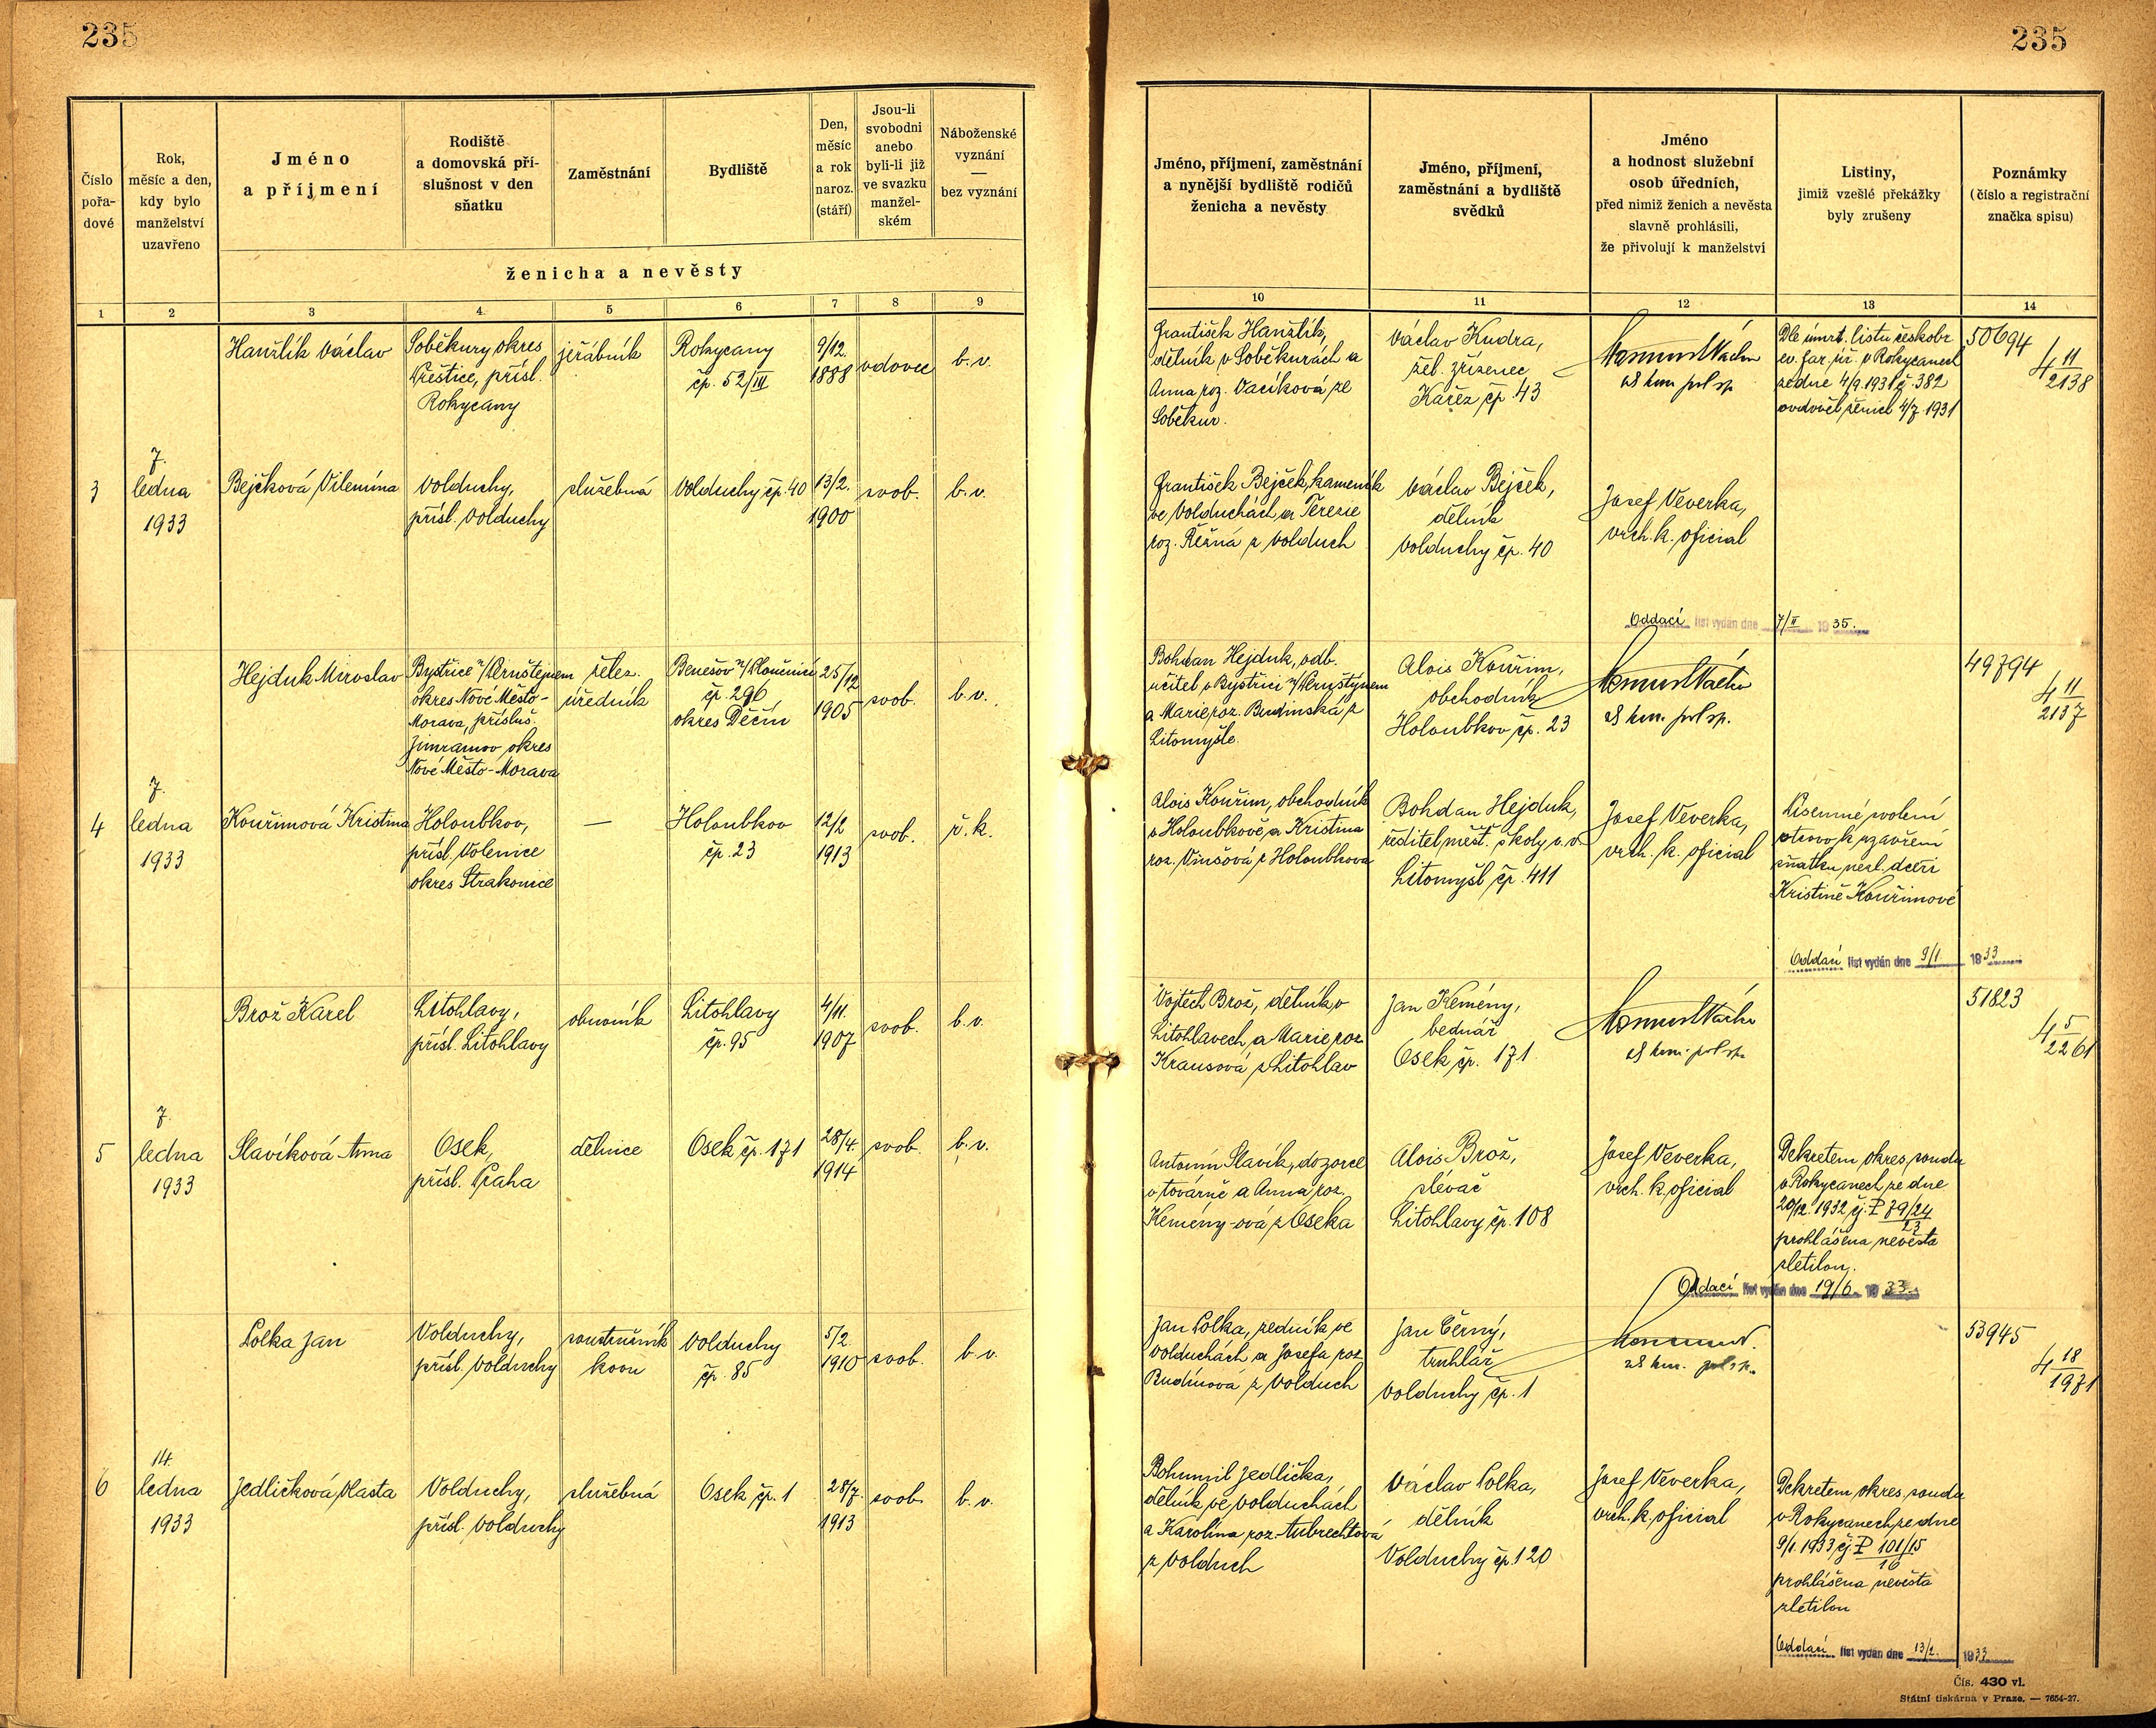 235
235
Číslo
pořa-
dové
Rok,
měsíc a den,
kdy bylo
manželství
uzavřeno
Jméno
a příjmení
Rodiště
a domovská pří-
slušnost v den
sňatku
Zaměstnání
Bydliště
Den,
měsíc
a rok
naroz.
(stáří)
Jsou-li
svobodni
anebo
byli-li již
ve svazku
manžel-
ském
Náboženské
vyznání
—
bez vyznání
ženicha a nevěsty
Jméno, příjmení, zaměstnání
a nynější bydliště rodičů
ženicha a nevěsty
Jméno, příjmení,
zaměstnání a bydliště
svědků
Jméno
a hodnost služební
osob úředních,
před nimiž ženich a nevěsta
slavně prohlásili,
že přivolují k manželství
Listiny,
jimiž vzešlé překážky
byly zrušeny
Poznámky
(číslo a registrační
značka spisu)
1 2 3 4 5 6 7 8 9 10 11 12 13 14
Hanžlík Václav
Soběkury okres
Přeštice, přísl.
Rokycany
jeřábník
Rokycany
čp. 52/III
9/12.
1888
vdovec
b. v.
František Hanžlík,
dělník v Soběkurách a
Anna roz. Vacíková ze
Soběkur.
Václav Kudra,
žel. zřízenec
Kařez čp. 43
Dle úmrt. listu českobr.
ev. far. úř. v Rokycanech
ze dne 4/9.1931 č. 382
ovdověl ženich 4/7.1931
50694
4 11
2138
3
7.
ledna
1933
Bejčková Vilemína
Volduchy,
přísl. Volduchy
služebná
Volduchy čp. 40
13/2.
1900
svob.
b. v.
František Bejček, kameník
ve Volduchách a Terezie
roz. Řežná z Volduch
Václav Bejček,
dělník
Volduchy čp. 40
Josef Veverka,
vrch. k. oficial
Oddací list vydán dne 7/II 1935.
Hejduk Miroslav
Bystřice n/Pernštejnem
okres Nové Město-
Morava, přísluš.
Jimramov okres
Nové Město-Morava
želez.
úředník
Benešov n/Ploučnicí
čp. 296
okres Děčín
25/12
1905
svob.
b. v.
Bohdan Hejduk, odb.
učitel v Bystřici n/Pernštýnem
a Marie roz. Budinská z
Litomyšle.
Alois Kouřim,
obchodník
Holoubkov čp. 23
49794
4 11
2137
4
7.
ledna
1933
Kouřimová Kristina
Holoubkov,
přísl. Volenice
okres Strakonice
—
Holoubkov
čp. 23
12/2
1913
svob.
ř. k.
Alois Kouřim, obchodník
v Holoubkově a Kristina
roz. Vinšová z Holoubkova
Bohdan Hejduk,
ředitel měšť. školy v. v.
Litomyšl čp. 411
Josef Veverka,
vrch. k. oficial
Písemné svolení
otcovo k uzavření
sňatku nezl. dceři
Kristině Kouřimové
Oddací list vydán dne 9/1 1933
Brož Karel
Litohlavy,
přísl. Litohlavy
obuvník
Litohlavy
čp. 95
4/11.
1907
svob.
b. v.
Vojtěch Brož, dělník v
Litohlavech a Marie roz.
Krausová z Litohlav
Jan Kemény,
bednář
Osek čp. 171
51823
4 5
2261
5
7.
ledna
1933
Slavíková Anna
Osek,
přísl. Praha
dělnice
Osek čp. 171
28/4.
1914
svob.
b. v.
Antonín Slavík, dozorce
v továrně a Anna roz.
Kemény-ová z Oseka
Alois Brož,
slévač
Litohlavy čp. 108
Josef Veverka,
vrch. k. oficial
Dekretem okres. soudu
v Rokycanech ze dne
20/12. 1932 čj. P 79/24
23
prohlášena nevěsta
zletilou.
Oddací list vydán dne 19/6. 1933.
Polka Jan
Volduchy,
přísl. Volduchy
soustružník
kovu
Volduchy
čp. 85
5/2.
1910
svob.
b. v.
Jan Polka, zedník ve
Volduchách a Josefa roz.
Budínová z Volduch
Jan Černý,
truhlář
Volduchy čp. 1
53945
4 18
1971
6
14.
ledna
1933
Jedličková Vlasta
Volduchy,
přísl. Volduchy
služebná
Osek čp. 1
28/7.
1913
svob.
b. v.
Bohumil Jedlička,
dělník ve Volduchách
a Karolína roz. Aubrechtová
z Volduch
Václav Polka,
dělník
Volduchy čp. 120
Josef Veverka,
vrch. k. oficial
Dekretem okres. soudu
v Rokycanech ze dne
9/1. 1933 čj. P 101/15
16
prohlášena nevěsta
zletilou
Oddací list vydán dne 13/2. 1933
Čís. 430 vl.
Státní tiskárna v Praze. — 7654-27.